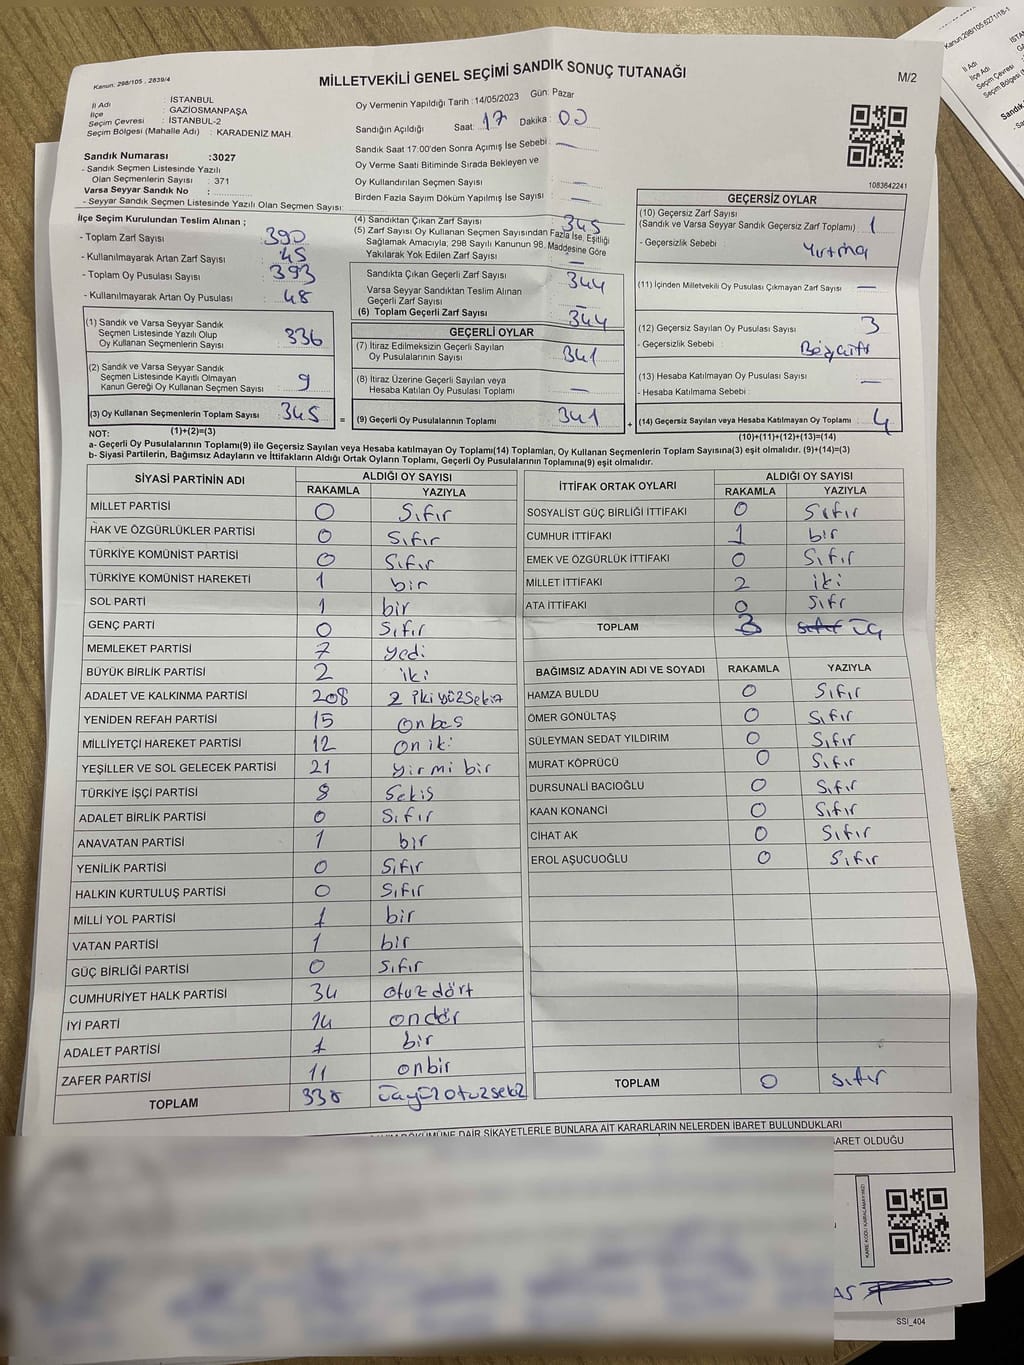 Kanun: 298/105 , 2839/4
MİLLETVEKİLİ GENEL SEÇİMİ SANDIK SONUÇ TUTANAĞI
M/2
İl Adı : İSTANBUL
İlçe : GAZİOSMANPAŞA
Seçim Çevresi : İSTANBUL-2
Seçim Bölgesi (Mahalle Adı) : KARADENİZ MAH.
Sandık Numarası :3027
- Sandık Seçmen Listesinde Yazılı
Olan Seçmenlerin Sayısı : 371
Varsa Seyyar Sandık No :
- Seyyar Sandık Seçmen Listesinde Yazılı Olan Seçmen Sayısı:
Oy Vermenin Yapıldığı Tarih :14/05/2023 Gün: Pazar
Sandığın Açıldığı Saat: 17 Dakika : 00
Sandık Saat 17:00'den Sonra Açımış İse Sebebi: —
Oy Verme Saati Bitiminde Sırada Bekleyen ve
Oy Kullandırılan Seçmen Sayısı —
Birden Fazla Sayım Döküm Yapılmış İse Sayısı —
1083642241
İlçe Seçim Kurulundan Teslim Alınan ;
- Toplam Zarf Sayısı 390
- Kullanılmayarak Artan Zarf Sayısı 45
- Toplam Oy Pusulası Sayısı 393
- Kullanılmayarak Artan Oy Pusulası 48
(1) Sandık ve Varsa Seyyar Sandık
Seçmen Listesinde Yazılı Olup
Oy Kullanan Seçmenlerin Sayısı 336
(2) Sandık ve Varsa Seyyar Sandık
Seçmen Listesinde Kayıtlı Olmayan
Kanun Gereği Oy Kullanan Seçmen Sayısı 9
(3) Oy Kullanan Seçmenlerin Toplam Sayısı 345 =
(1)+(2)=(3)
(4) Sandıktan Çıkan Zarf Sayısı 345
(5) Zarf Sayısı Oy Kullanan Seçmen Sayısından Fazla İse, Eşitliği
Sağlamak Amacıyla, 298 Sayılı Kanunun 98. Maddesine Göre
Yakılarak Yok Edilen Zarf Sayısı —
Sandıkta Çıkan Geçerli Zarf Sayısı 344
Varsa Seyyar Sandıktan Teslim Alınan
Geçerli Zarf Sayısı —
(6) Toplam Geçerli Zarf Sayısı 344
GEÇERLİ OYLAR
(7) İtiraz Edilmeksizin Geçerli Sayılan
Oy Pusulalarının Sayısı 341
(8) İtiraz Üzerine Geçerli Sayılan veya
Hesaba Katılan Oy Pusulası Toplamı —
(9) Geçerli Oy Pusulalarının Toplamı 341 +
GEÇERSİZ OYLAR
(10) Geçersiz Zarf Sayısı
(Sandık ve Varsa Seyyar Sandık Geçersiz Zarf Toplamı) 1
- Geçersizlik Sebebi : Yırtma
(11) İçinden Milletvekili Oy Pusulası Çıkmayan Zarf Sayısı —
(12) Geçersiz Sayılan Oy Pusulası Sayısı 3
- Geçersizlik Sebebi :
(13) Hesaba Katılmayan Oy Pusulası Sayısı —
- Hesaba Katılmama Sebebi :
(14) Geçersiz Sayılan veya Hesaba Katılmayan Oy Toplamı 4
(10)+(11)+(12)+(13)=(14)
NOT:
a- Geçerli Oy Pusulalarının Toplamı(9) ile Geçersiz Sayılan veya Hesaba katılmayan Oy Toplamı(14) Toplamları, Oy Kullanan Seçmenlerin Toplam Sayısına(3) eşit olmalıdır. (9)+(14)=(3)
b- Siyasi Partilerin, Bağımsız Adayların ve İttifakların Aldığı Ortak Oyların Toplamı, Geçerli Oy Pusulalarının Toplamına(9) eşit olmalıdır.
SİYASİ PARTİNİN ADI ALDIĞI OY SAYISI
RAKAMLA YAZIYLA
MİLLET PARTİSİ 0 Sıfır
HAK VE ÖZGÜRLÜKLER PARTİSİ 0 Sıfır
TÜRKİYE KOMÜNİST PARTİSİ 0 Sıfır
TÜRKİYE KOMÜNİST HAREKETİ 1 bir
SOL PARTİ 1 bir
GENÇ PARTİ 0 Sıfır
MEMLEKET PARTİSİ 7 yedi
BÜYÜK BİRLİK PARTİSİ 2 iki
ADALET VE KALKINMA PARTİSİ 208 2 ikiyüzsekiz
YENİDEN REFAH PARTİSİ 15 onbes
MİLLİYETÇİ HAREKET PARTİSİ 12 oniki
YEŞİLLER VE SOL GELECEK PARTİSİ 21 yirmi bir
TÜRKİYE İŞÇİ PARTİSİ 8 Sekis
ADALET BİRLİK PARTİSİ 0 Sıfır
ANAVATAN PARTİSİ 1 bir
YENİLİK PARTİSİ 0 Sıfır
HALKIN KURTULUŞ PARTİSİ 0 Sıfır
MİLLİ YOL PARTİSİ 1 bir
VATAN PARTİSİ 1 bir
GÜÇ BİRLİĞİ PARTİSİ 0 Sıfır
CUMHURİYET HALK PARTİSİ 34 otuzdört
İYİ PARTİ 14 ondör
ADALET PARTİSİ 1 bir
ZAFER PARTİSİ 11 onbir
TOPLAM 338 üçyüzotuzsekiz
İTTİFAK ORTAK OYLARI ALDIĞI OY SAYISI
RAKAMLA YAZIYLA
SOSYALİST GÜÇ BİRLİĞİ İTTİFAKI 0 Sıfır
CUMHUR İTTİFAKI 1 bir
EMEK VE ÖZGÜRLÜK İTTİFAKI 0 Sıfır
MİLLET İTTİFAKI 2 iki
ATA İTTİFAKI 0 Sıfr
TOPLAM 3 üç
BAĞIMSIZ ADAYIN ADI VE SOYADI RAKAMLA YAZIYLA
HAMZA BULDU 0 Sıfır
ÖMER GÖNÜLTAŞ 0 Sıfır
SÜLEYMAN SEDAT YILDIRIM 0 Sıfır
MURAT KÖPRÜCÜ 0 Sıfır
DURSUNALİ BACIOĞLU 0 Sıfır
KAAN KONANCİ 0 Sıfır
CİHAT AK 0 Sıfır
EROL AŞUCUOĞLU 0 Sıfır
TOPLAM 0 Sıfır
DÖKÜMÜNE DAİR ŞİKAYETLERLE BUNLARA AİT KARARLARIN NELERDEN İBARET BULUNDUKLARI
BARET OLDUĞU
SSİ_404
Kanun:298/105,6271/18-1
İl Adı
İlçe Adı
Seçim Çevresi